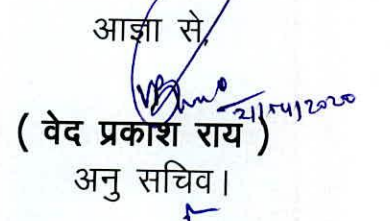 आज्ञा से,
21/04/2020
( वेद प्रकाश राय )
अनु सचिव।